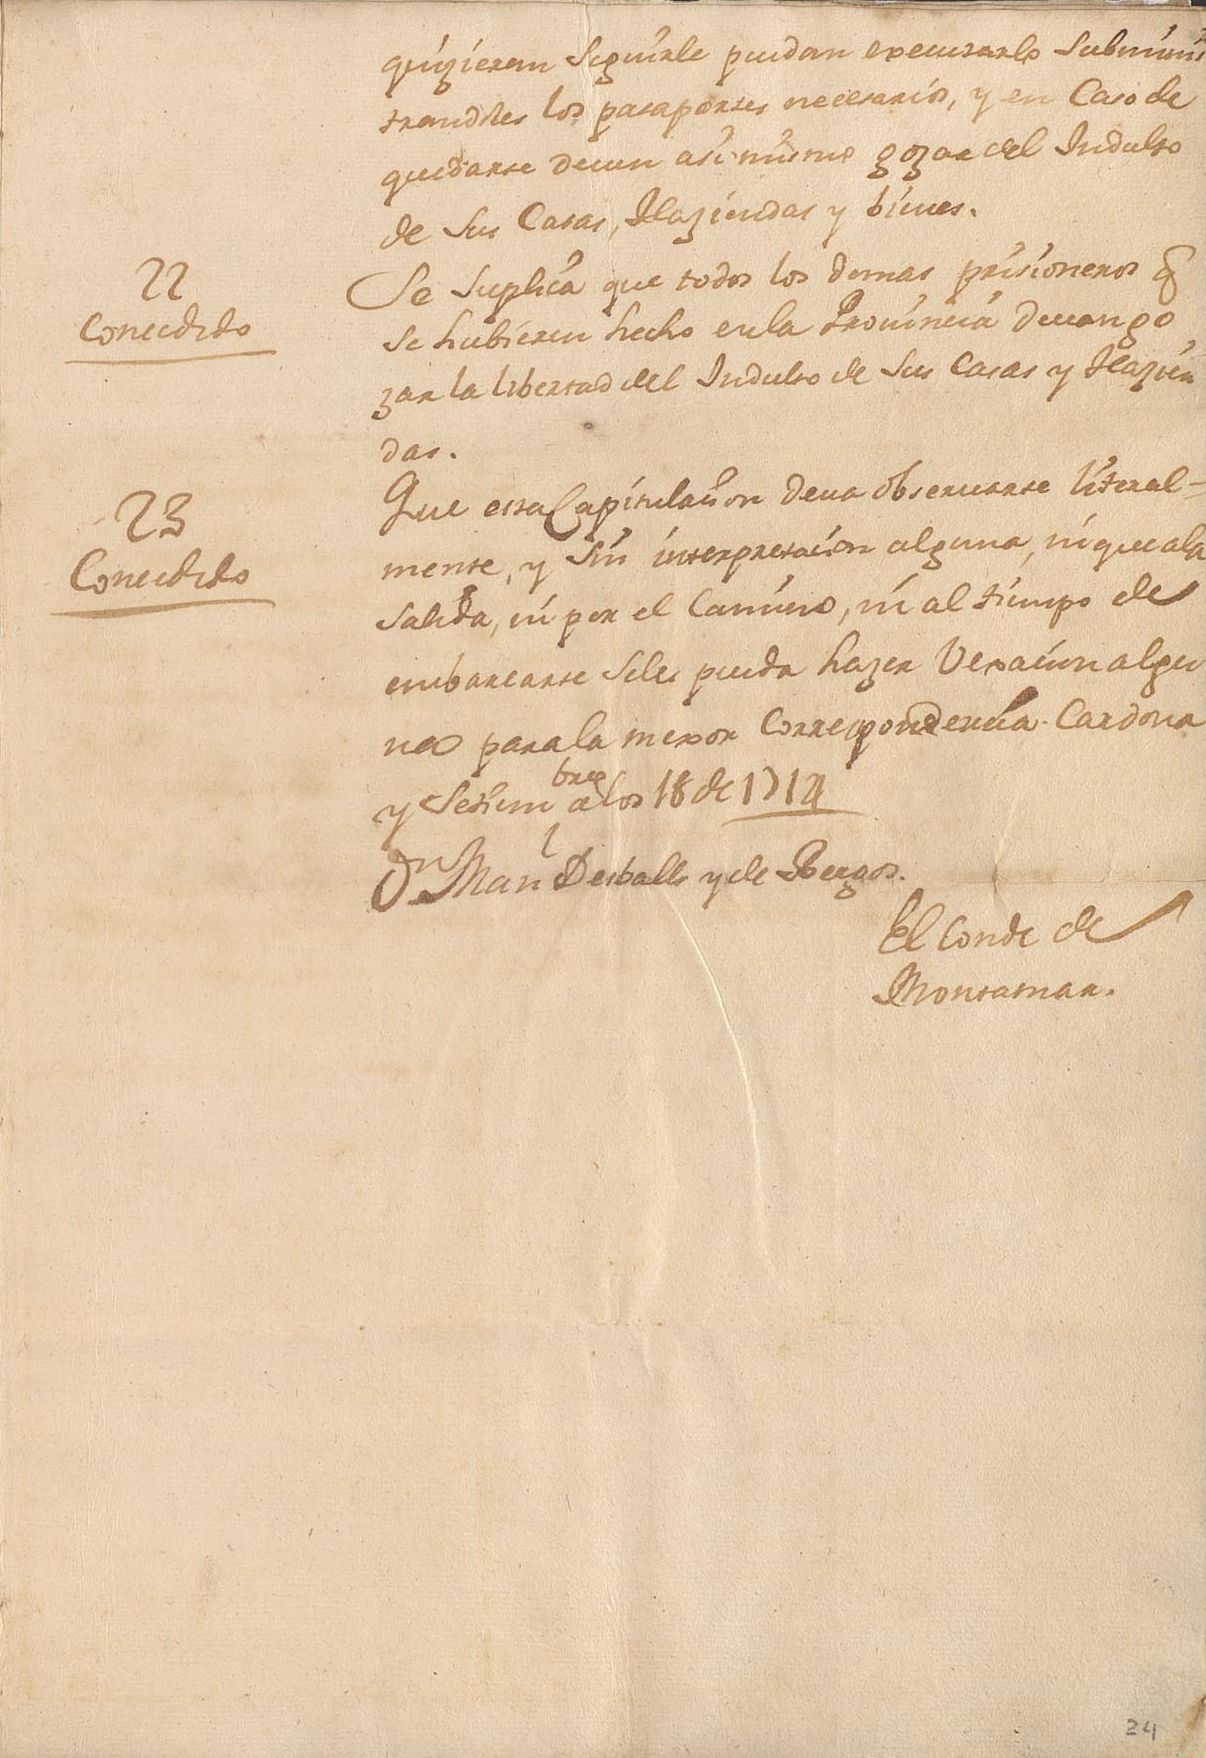 quizieren seguirle puedan executarlo subminis
trandoles los pasaportes necesarios, y en Caso de
quedarse devan asi mismo gozar del Indulto
de sus Casas, Haziendas y bienes.
22
Concedido
Se suplica que todos los demas prisioneros q
se hubieren hecho en la Provincia devan go
zar la libertad del Indulto de sus Casas y Hazien
das.
23
Concedido
Que esta Capitulacion deva observarse literal-
mente, y sin interpretacion alguna, ni que a la
salida, ni por el Camino, ni al tiempo de
embarcarse seles pueda hazer Vexacion algu
na para la mexor Correspondencia. Cardona
y Setiembre a los 18 de 1714
Dn Manl Desvalls y de Vergos.
El Conde de
Montemar.
24